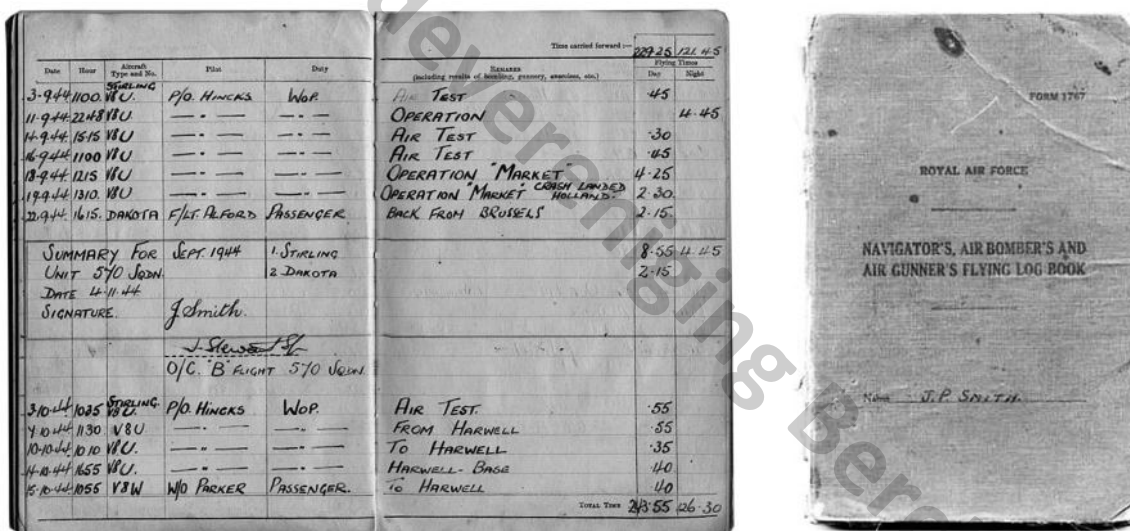 Time carried forward :— 229·25 121·45
Date Hour Aircraft Type and No. Pilot Duty REMARKS (including results of bombing, gunnery, exercises, etc.) Flying Times Day Night
3-9-44 1100 STIRLING V8U. P/O. HINCKS WOP. AIR TEST ·45
11-9-44 2248 V8U. —"— —"— OPERATION 4·45
14-9-44 1515 V8U —"— —"— AIR TEST ·30
16-9-44 1100 V8U —"— —"— AIR TEST ·45
18-9-44 1215 V8U —"— —"— OPERATION "MARKET" 4·25
19-9-44 1310. V8U. —"— —"— OPERATION "MARKET" CRASH LANDED HOLLAND. 2·30.
22-9-44. 1615. DAKOTA F/LT. ALFORD PASSENGER BACK FROM BRUSSELS 2·15.
SUMMARY FOR SEPT. 1944 1. STIRLING 8·55 4·45
UNIT 570 SQDN. 2 DAKOTA 2·15
DATE 4·11·44
SIGNATURE. J Smith.
O/C. "B" FLIGHT 570 SQDN.
3-10-44 1035 STIRLING V8U. P/O. HINCKS WOP. AIR TEST. ·55
1130 V8U —"— —"— FROM HARWELL ·55
10-10-44 1010 V8U. —"— —"— TO HARWELL ·35
14-10-44 1655 V8U. —"— —"— HARWELL - BASE ·40
15-10-44 1055 V8W W/O PARKER PASSENGER. TO HARWELL ·40
TOTAL TIME 243·55 126·30
FORM 1767
ROYAL AIR FORCE
NAVIGATOR'S, AIR BOMBER'S AND
AIR GUNNER'S FLYING LOG BOOK
Name J.P. SMITH.